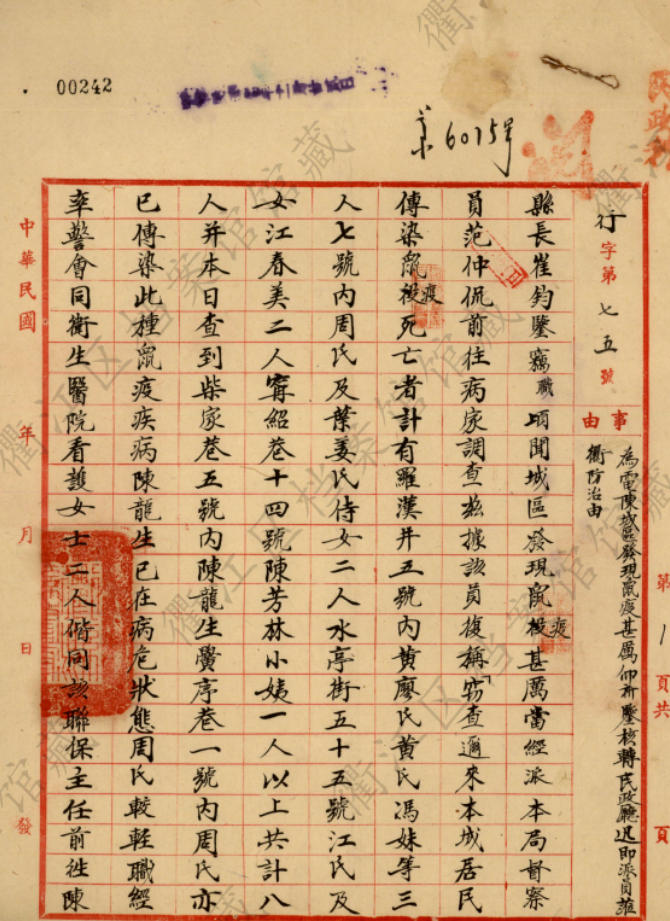 00242
6015号
民政
行字第七五號
事由
為電陳城區發現鼠疫甚厲仰祈鑒核轉民政廳迅即派員蒞
衢防治由
第1頁共 頁
縣長崔鈞鑒竊職頃聞城區發現鼠疫甚厲當經派本局督察
員范仲侃前往病家調查茲據該員復稱「竊查邇來本城居民
傳染鼠疫死亡者計有羅漢井五號內黄廖氏黄氏馮妹等三
人七號內周氏及葉姜氏侍女二人水亭街五十五號江氏及
女江春美二人甯紹巷十四號陳芳林小姨一人以上共計八
人并本日查到柴家巷五號內陳龍生黌序巷一號內周氏亦
已傳染此種鼠疫疾病陳龍生已在病危狀態周氏較輕職經
率警會同衛生醫院看護女士二人偕同該聯保主任前往陳
中華民國 年 月 日 發
衢江区档案馆馆藏